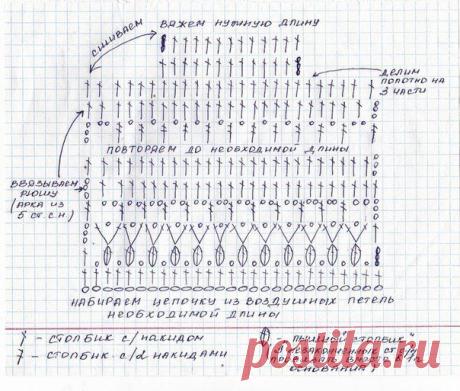 ВЯЖЕМ НУЖНУЮ ДЛИНУ
СШИВАЕМ
ДЕЛИМ
ПОЛОТНО НА
3 ЧАСТИ
ПОВТОРЯЕМ ДО НЕОБХОДИМОЙ ДЛИНЫ
ВВЯЗЫВАЕМ
РЮШУ
(АРКА ИЗ
5 СТ. С.Н.)
НАБИРАЕМ ЦЕПОЧКУ ИЗ ВОЗДУШНЫХ ПЕТЕЛЬ
НЕОБХОДИМОЙ ДЛИНЫ
- СТОЛБИК С/НАКИДОМ
- СТОЛБИК С/2 НАКИДАМИ
- "ПЫШНЫЙ СТОЛБИК"
НЕЗАКОНЧЕННЫХ СТ
ВМЕСТЕ
ОСНОВАНИЯ)
postila.ru